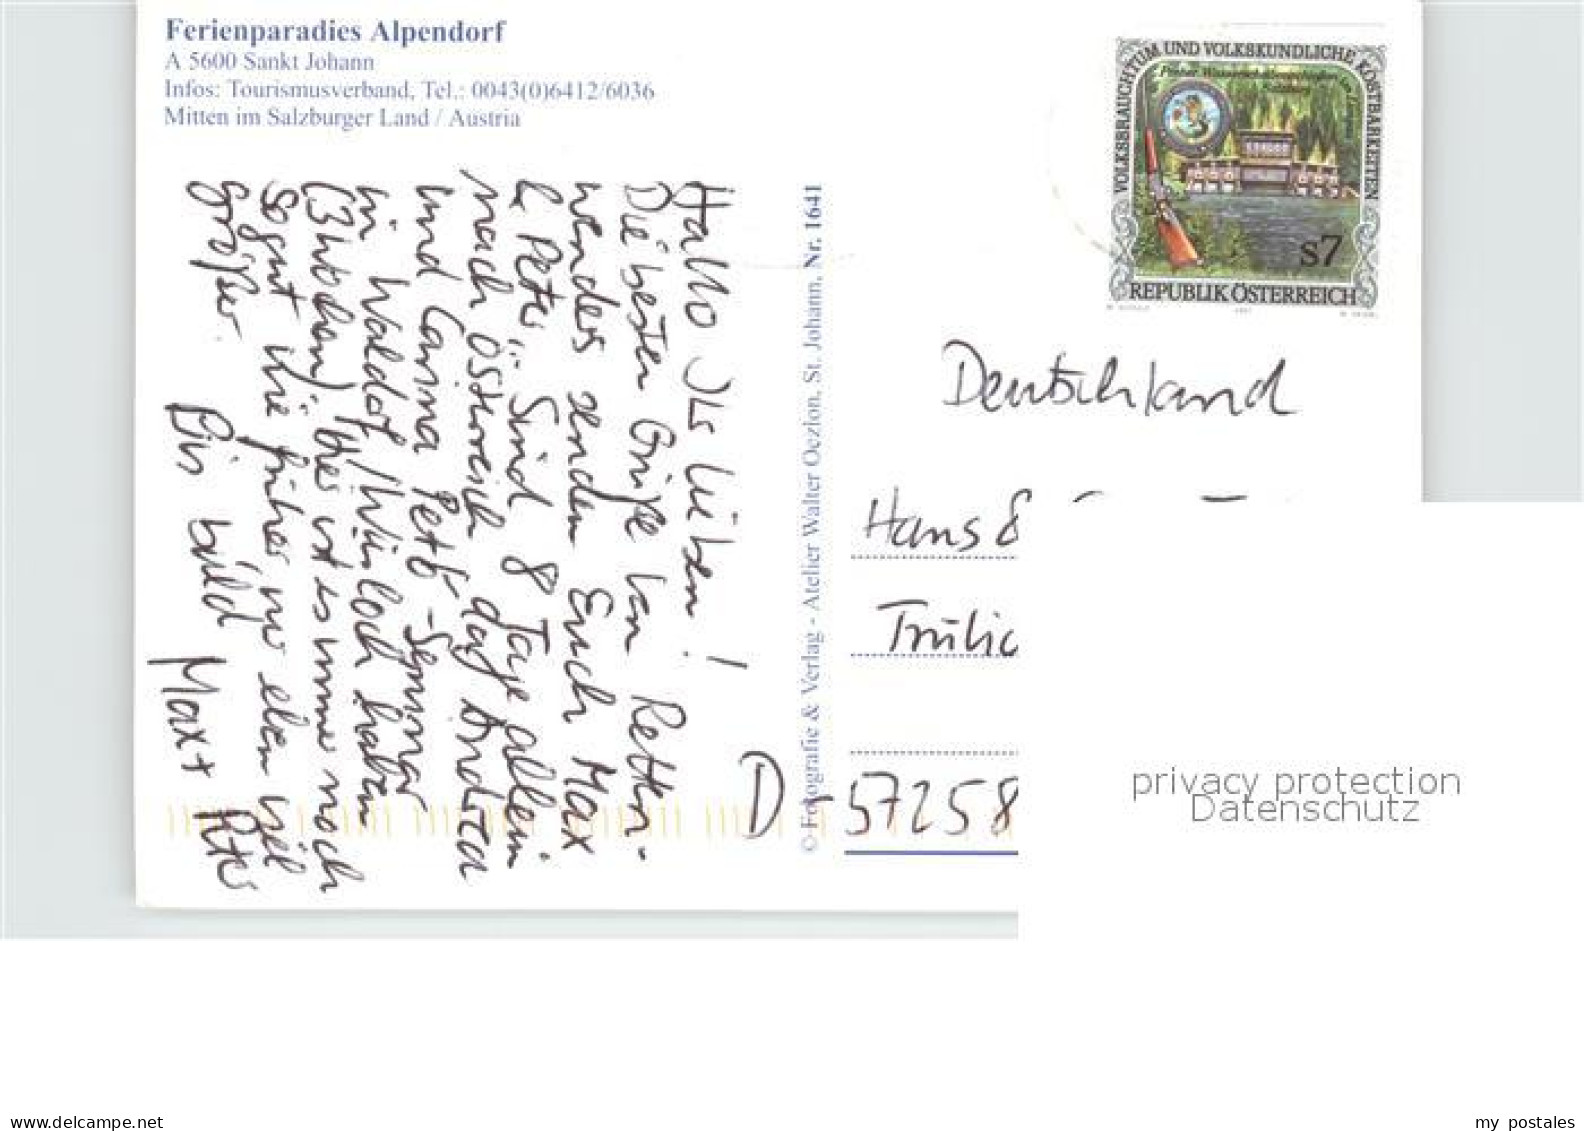 Ferienparadies Alpendorf
A 5600 Sankt Johann
Infos: Tourismusverband, Tel.: 0043(0)6412/6036
Mitten im Salzburger Land / Austria
VOLKSBRAUCHTUM UND VOLKSKUNDLICHE KOSTBARKEITEN
s7
REPUBLIK ÖSTERREICH
Hallo Ihr Lieben!
Die besten Grüße von
wendes senden Euch Max
& Peter. Sind 8 Tage allein
nach Österreich, da
und Carina Petö-Seminar
in Walddorf haben
ist es immer noch
so gut wie früher, nur eben viel
größer.
Bis bald Max + Peter
© Fotografie & Verlag - Atelier Walter Oczlon, St. Johann, Nr. 1641
Deutschland
Hans &
D-57258
privacy protection
Datenschutz
www.delcampe.net
my postales